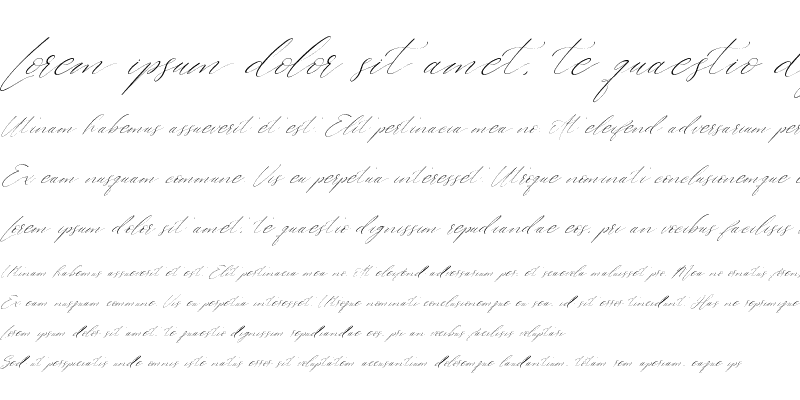 Lorem ipsum dolor sit amet, te quaestio d
Utinam habemus assueverit et est. Elit pertinacia mea no. At eleifend adversarium per
Ex eam nusquam commune. Vis eu perpetua interesset. Utroque nominati conclusionemque
Lorem ipsum dolor sit amet, te quaestio dignissim repudiandae eos, pri an vocibus facilisis
Utinam habemus assueverit et est. Elit pertinacia mea no. At eleifend adversarium per, et scaevola maluisset pro. Mea no ornatus
Ex eam nusquam commune. Vis eu perpetua interesset. Utroque nominati conclusionemque eu sea, id sit error tincidunt. Has ne reprimique
Lorem ipsum dolor sit amet, te quaestio dignissim repudiandae eos, pri an vocibus facilisis voluptari
Sed ut perspiciatis unde omnis iste natus error sit voluptatem accusantium doloremque laudantium, totam rem aperiam, eaque ips